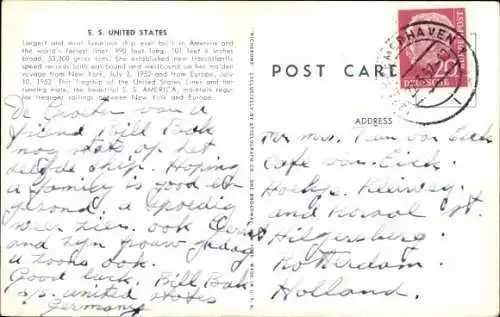 S. S. UNITED STATES
Largest and most luxurious ship ever built in America and
the world's fastest liner. 990 feet long, 101 feet 6 inches
broad, 53,300 gross tons. She established new transatlantic
speed records both eastbound and westbound on her maiden
voyage from New York, July 3, 1952 and from Europe, July
10, 1952. This flagship of the United States Lines and her
running mate, the beautiful S. S. AMERICA, maintain regu-
lar frequent sailings between New York and Europe.
De Groeten van a
friend Bill Bok
nog state op het
zelfde ship. Hoping
a family is good en
gezond. a spoedig
weer zien. ook
and zyn vrouw
a zoons ook.
Good luck. Bill Bok
s/s. united states
Germany
POST CARD
DEUTSCHE
20
ADDRESS
Mr Mrs. Teun van Eick
Cafe van Eick.
Hoekje
and
Hilgersberg.
Rotterdam.
Holland.